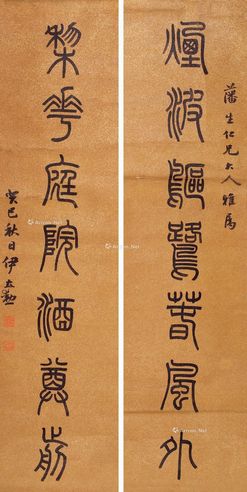 藩生仁兄大人雅属
煙波鷗鷺春風外
棃花庭院酒尊前
癸巳秋日伊立勳